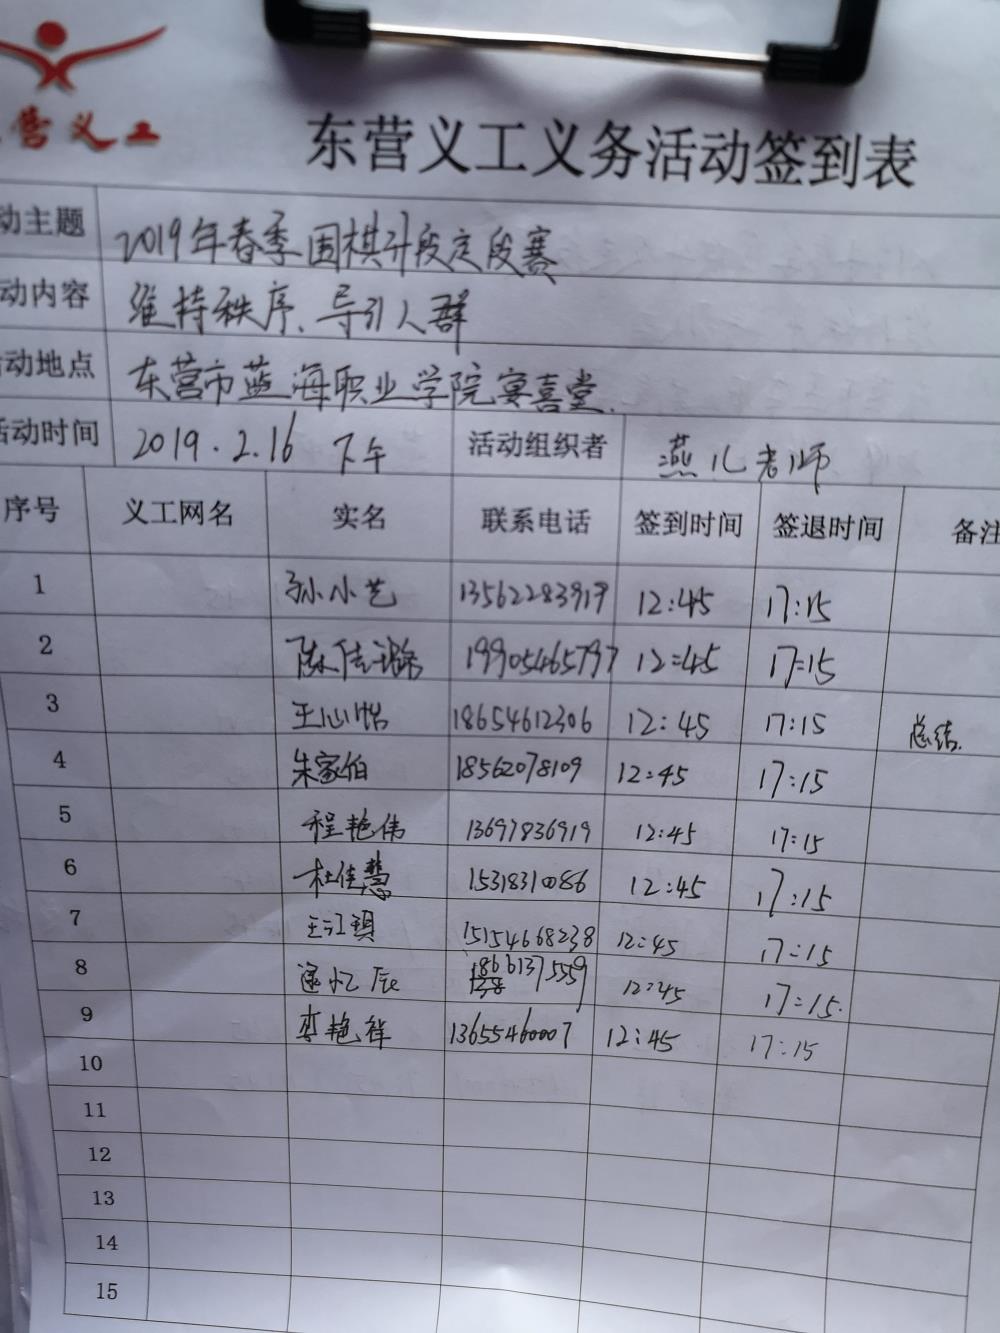 营义工
东营义工义务活动签到表
动主题 2019年春季围棋升段定段赛
动内容 维持秩序、导引人群
活动地点 东营市蓝海职业学院宴喜堂.
活动时间 2019.2.16 下午 活动组织者 燕儿老师
序号 义工网名 实名 联系电话 签到时间 签退时间 备注
1 孙小艺 13562283919 12:45 17:15
2 陈佳璐 19905465797 12:45 17:15
3 王心怡 18654612306 12:45 17:15 总结.
4 朱家伯 18562078109 12:45 17:15
5 程艳伟 13697836919 12:45 17:15
6 杜佳慧 15318310086 12:45 17:15
7 王江琪 15154668238 12:45 17:15
8 忆辰 18661375559 12:45 17:15.
9 李艳祥 13655460007 12:45 17:15
10
11
12
13
14
15